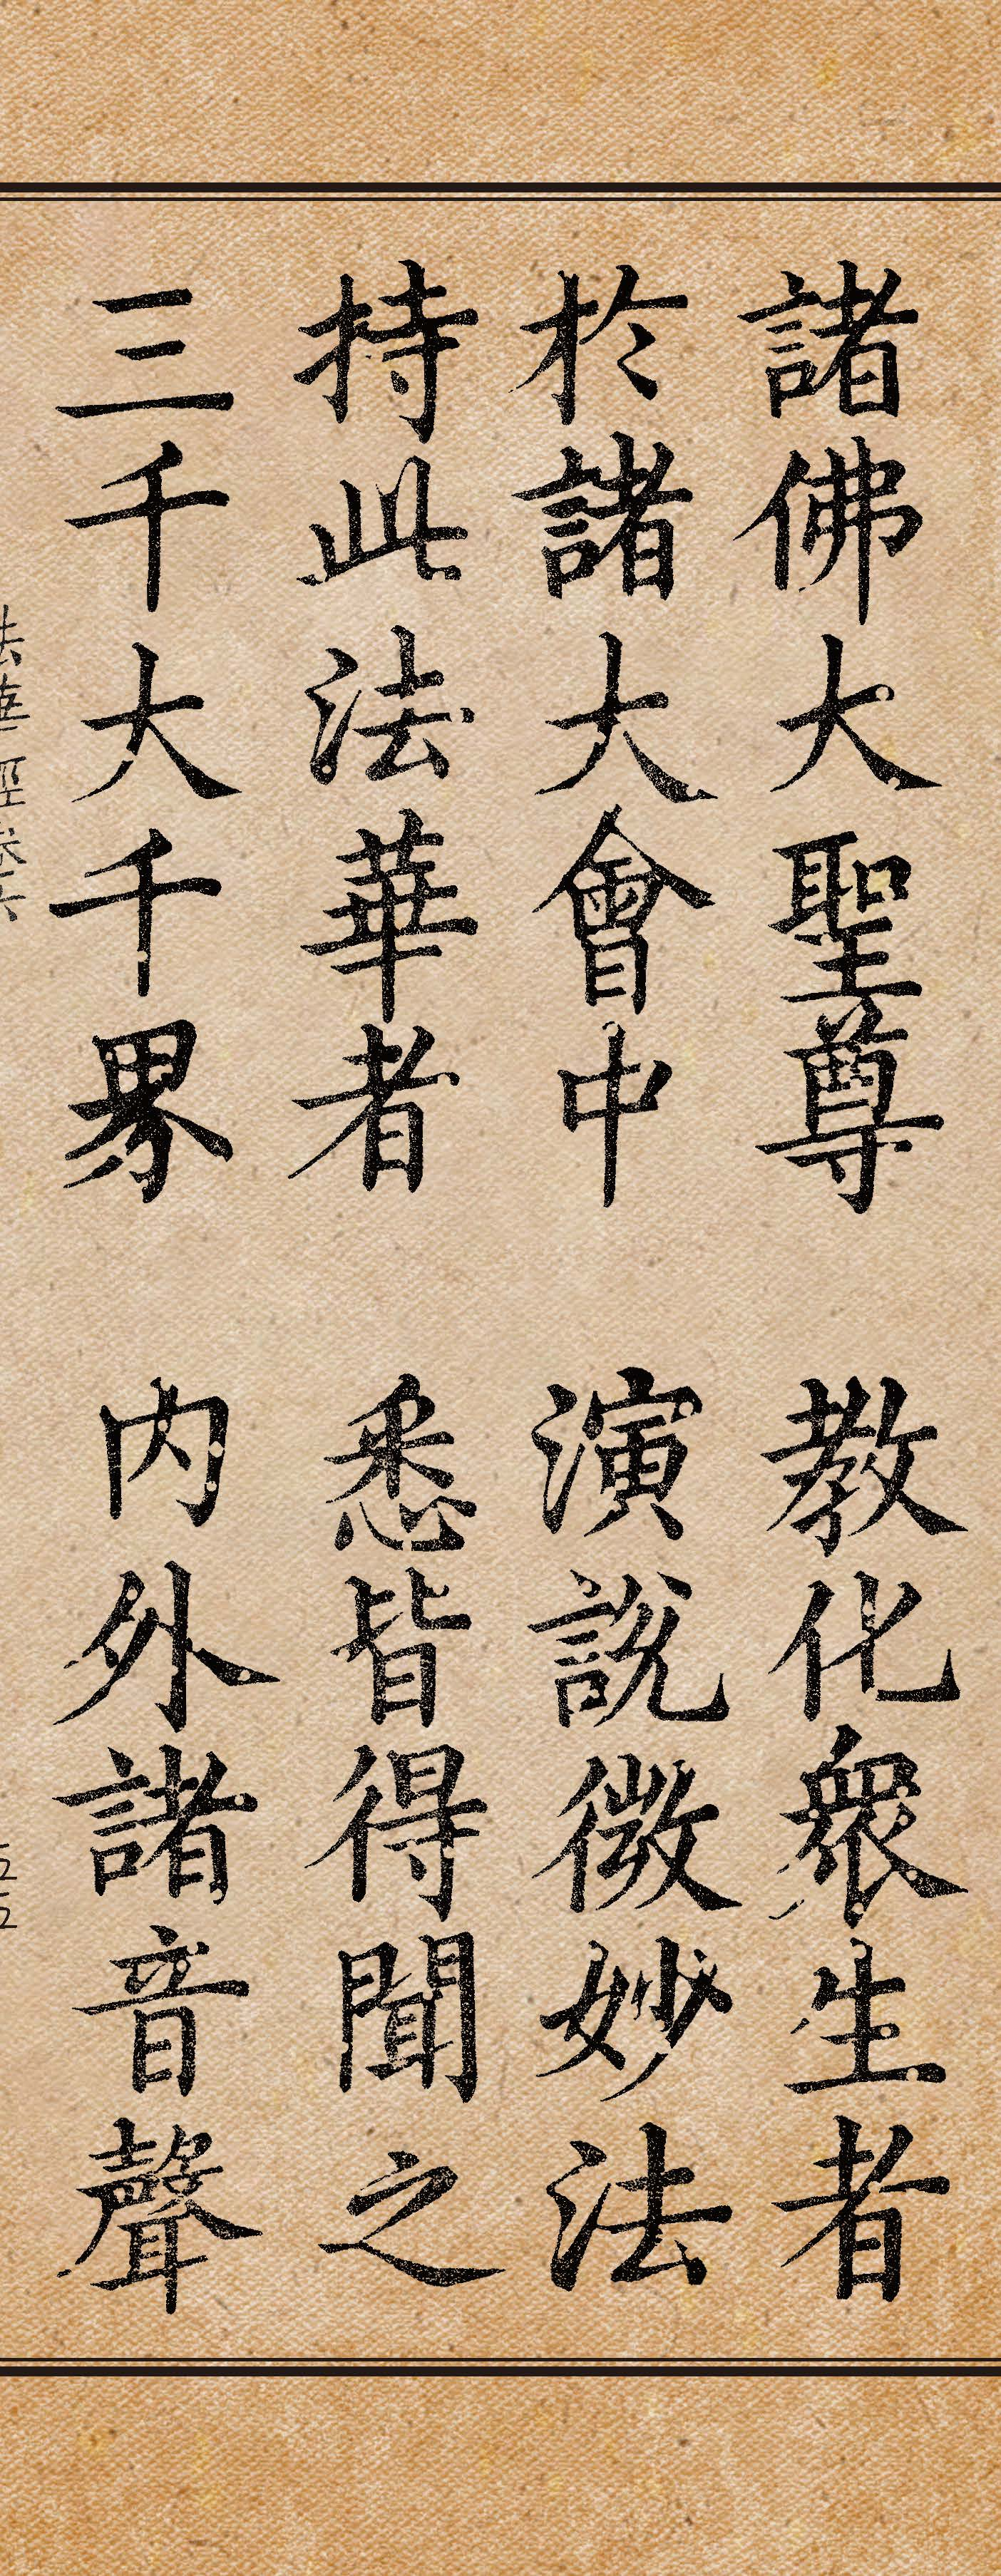 諸佛大聖尊 教化衆生者
於諸大會中 演說微妙法
持此法華者 悉皆得聞之
三千大千界 內外諸音聲
法華經卷六
五五